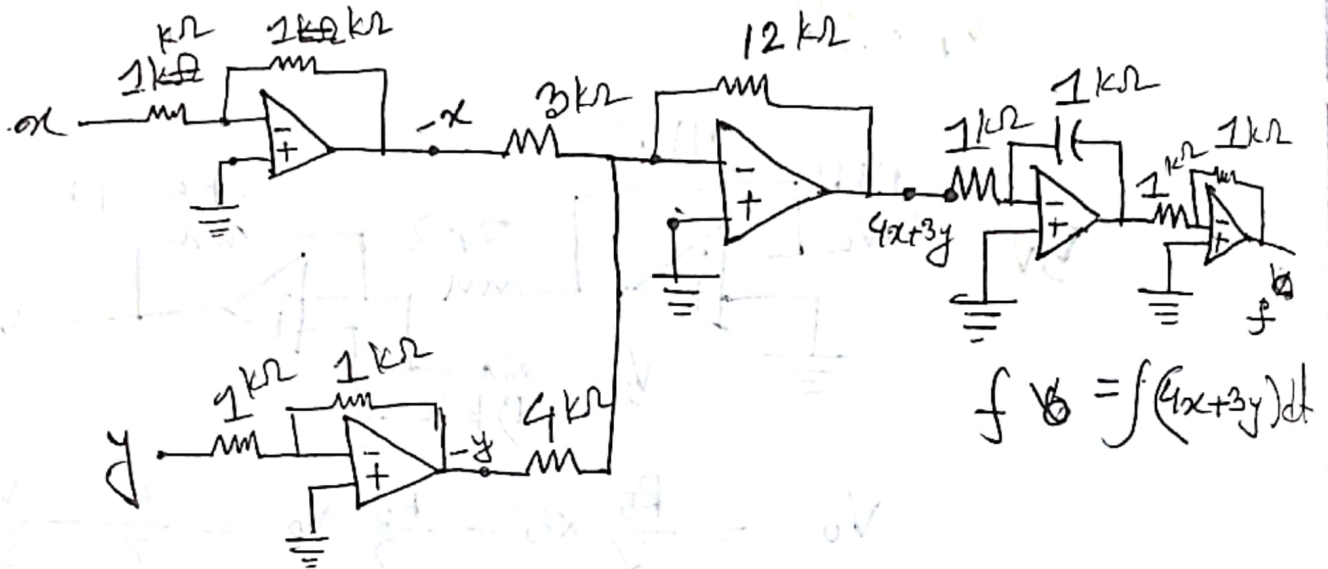 kΩ
1kΩ
1kΩ kΩ
x
-x
3kΩ
12 kΩ
1kΩ
1kΩ
1kΩ
1kΩ
4x+3y
f
1kΩ
1kΩ
y
-y
4kΩ
f = ∫(4x+3y)dt